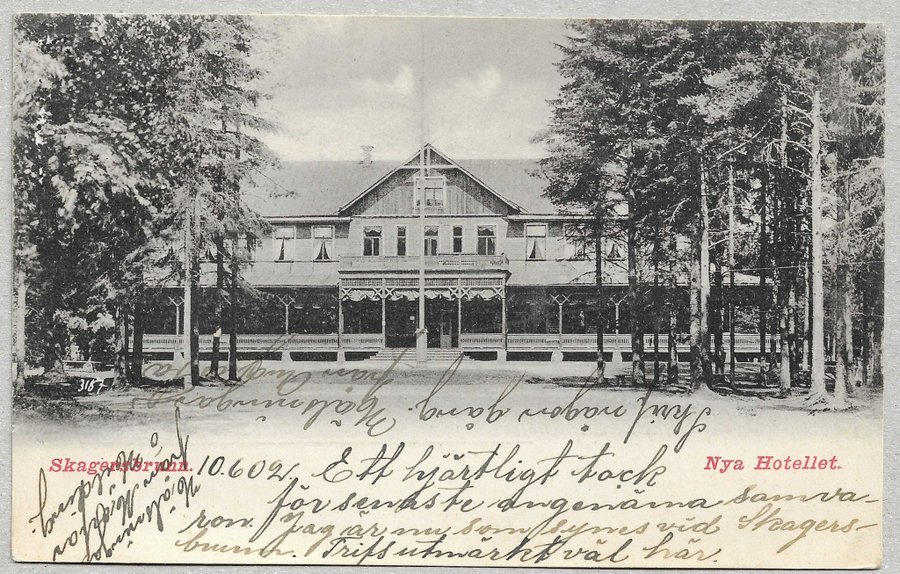 3187
Skagersbrunn.
Nya Hotellet.
10.6.02. Ett hjärtligt tack
för senaste angenäma samva-
ron. Jag är nu som synes vid Skagers-
brunn. Trifs utmärkt väl här.
Skrif någon gång. Hälsningar
från